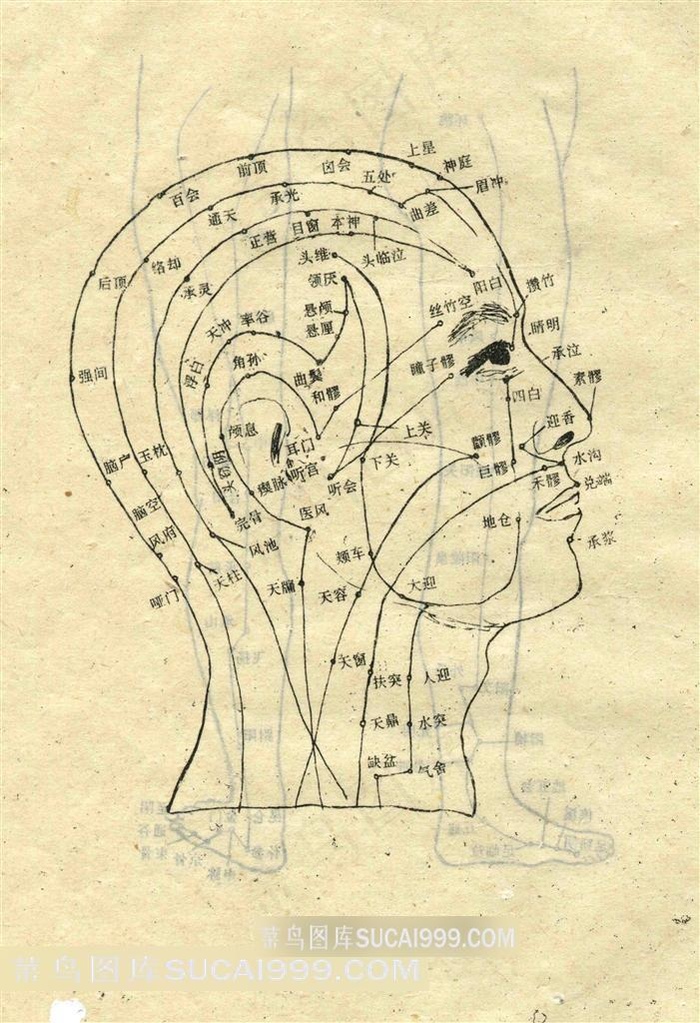 上星
神庭
囟会
前顶
五处
眉冲
百会
承光
曲差
通天
目窗
本神
正营
头维
头临泣
络却
后顶
颔厌
阳白
攒竹
承灵
悬颅
丝竹空
悬厘
率谷
天冲
睛明
承泣
角孙
瞳子髎
素髎
强间
浮白
曲鬓
和髎
四白
迎香
颅息
上关
颧髎
耳门
玉枕
下关
水沟
听宫
巨髎
禾髎
兑端
瘈脉
听会
脑空
医风
地仓
完骨
风府
承浆
风池
颊车
天柱
大迎
天牖
天容
哑门
天窗
扶突
人迎
天鼎
水突
缺盆
气舍
菜鸟图库SUCAI999.COM
菜鸟图库SUCAI999.COM